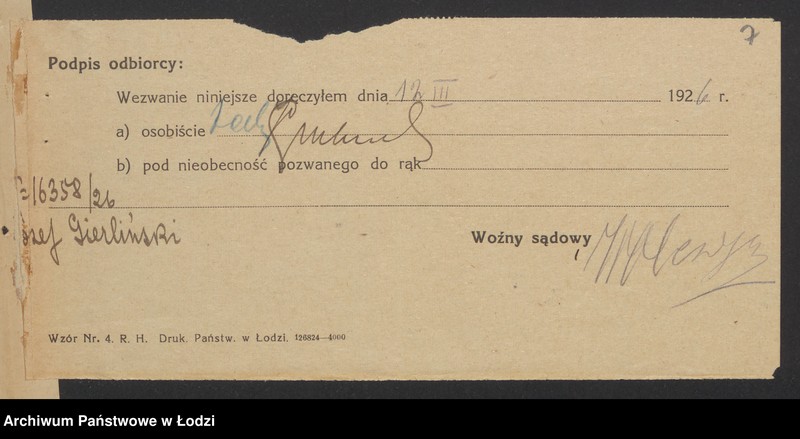 7
Podpis odbiorcy:
Wezwanie niniejsze doręczyłem dnia 12 III 1926 r.
a) osobiście
b) pod nieobecność pozwanego do rąk
16358/26
Józef Gierliński
Woźny sądowy
Wzór Nr. 4. R. H. Druk. Państw. w Łodzi. 126824—4000
Archiwum Państwowe w Łodzi